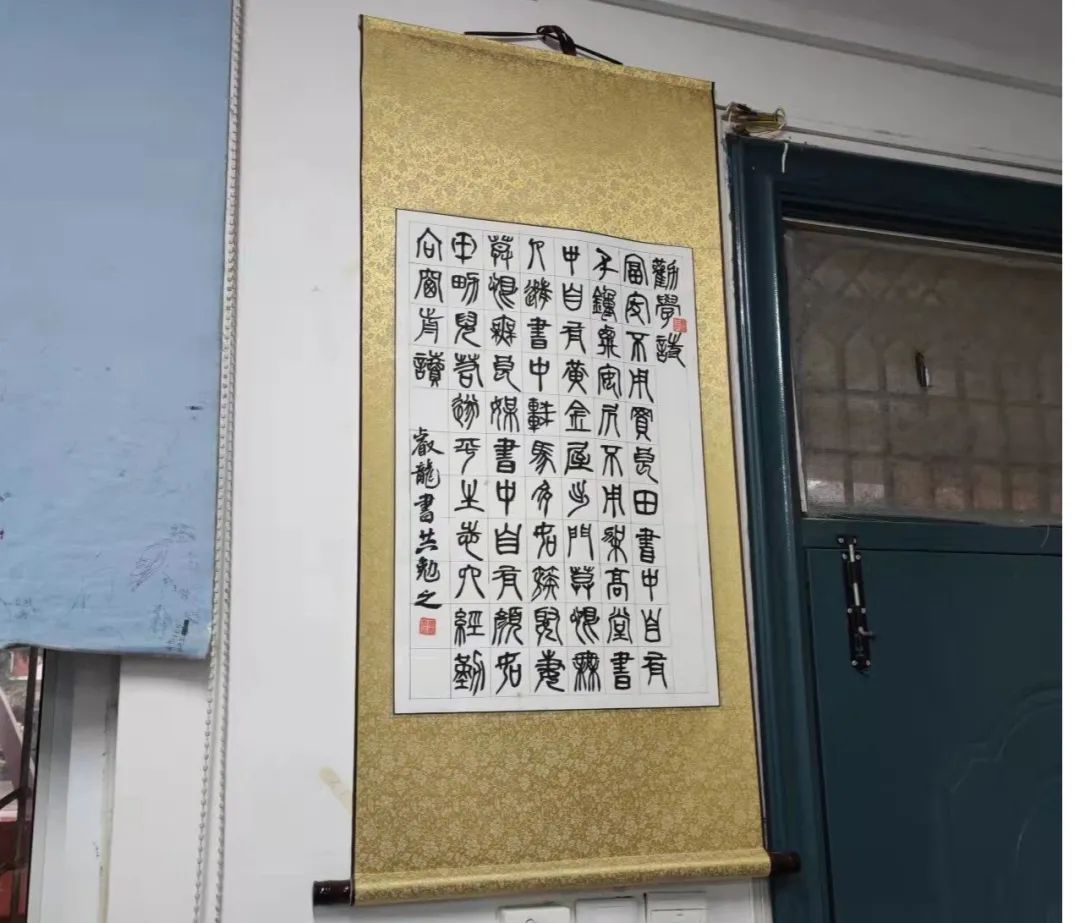 勸學詩
富家不用買良田書中自有
千鍾粟安居不用架高堂書
中自有黃金屋出門莫恨無
人隨書中車馬多如簇娶妻
莫恨無良媒書中自有顏如
玉男兒若遂平生志六經勤
向窗前讀
叡龍書共勉之